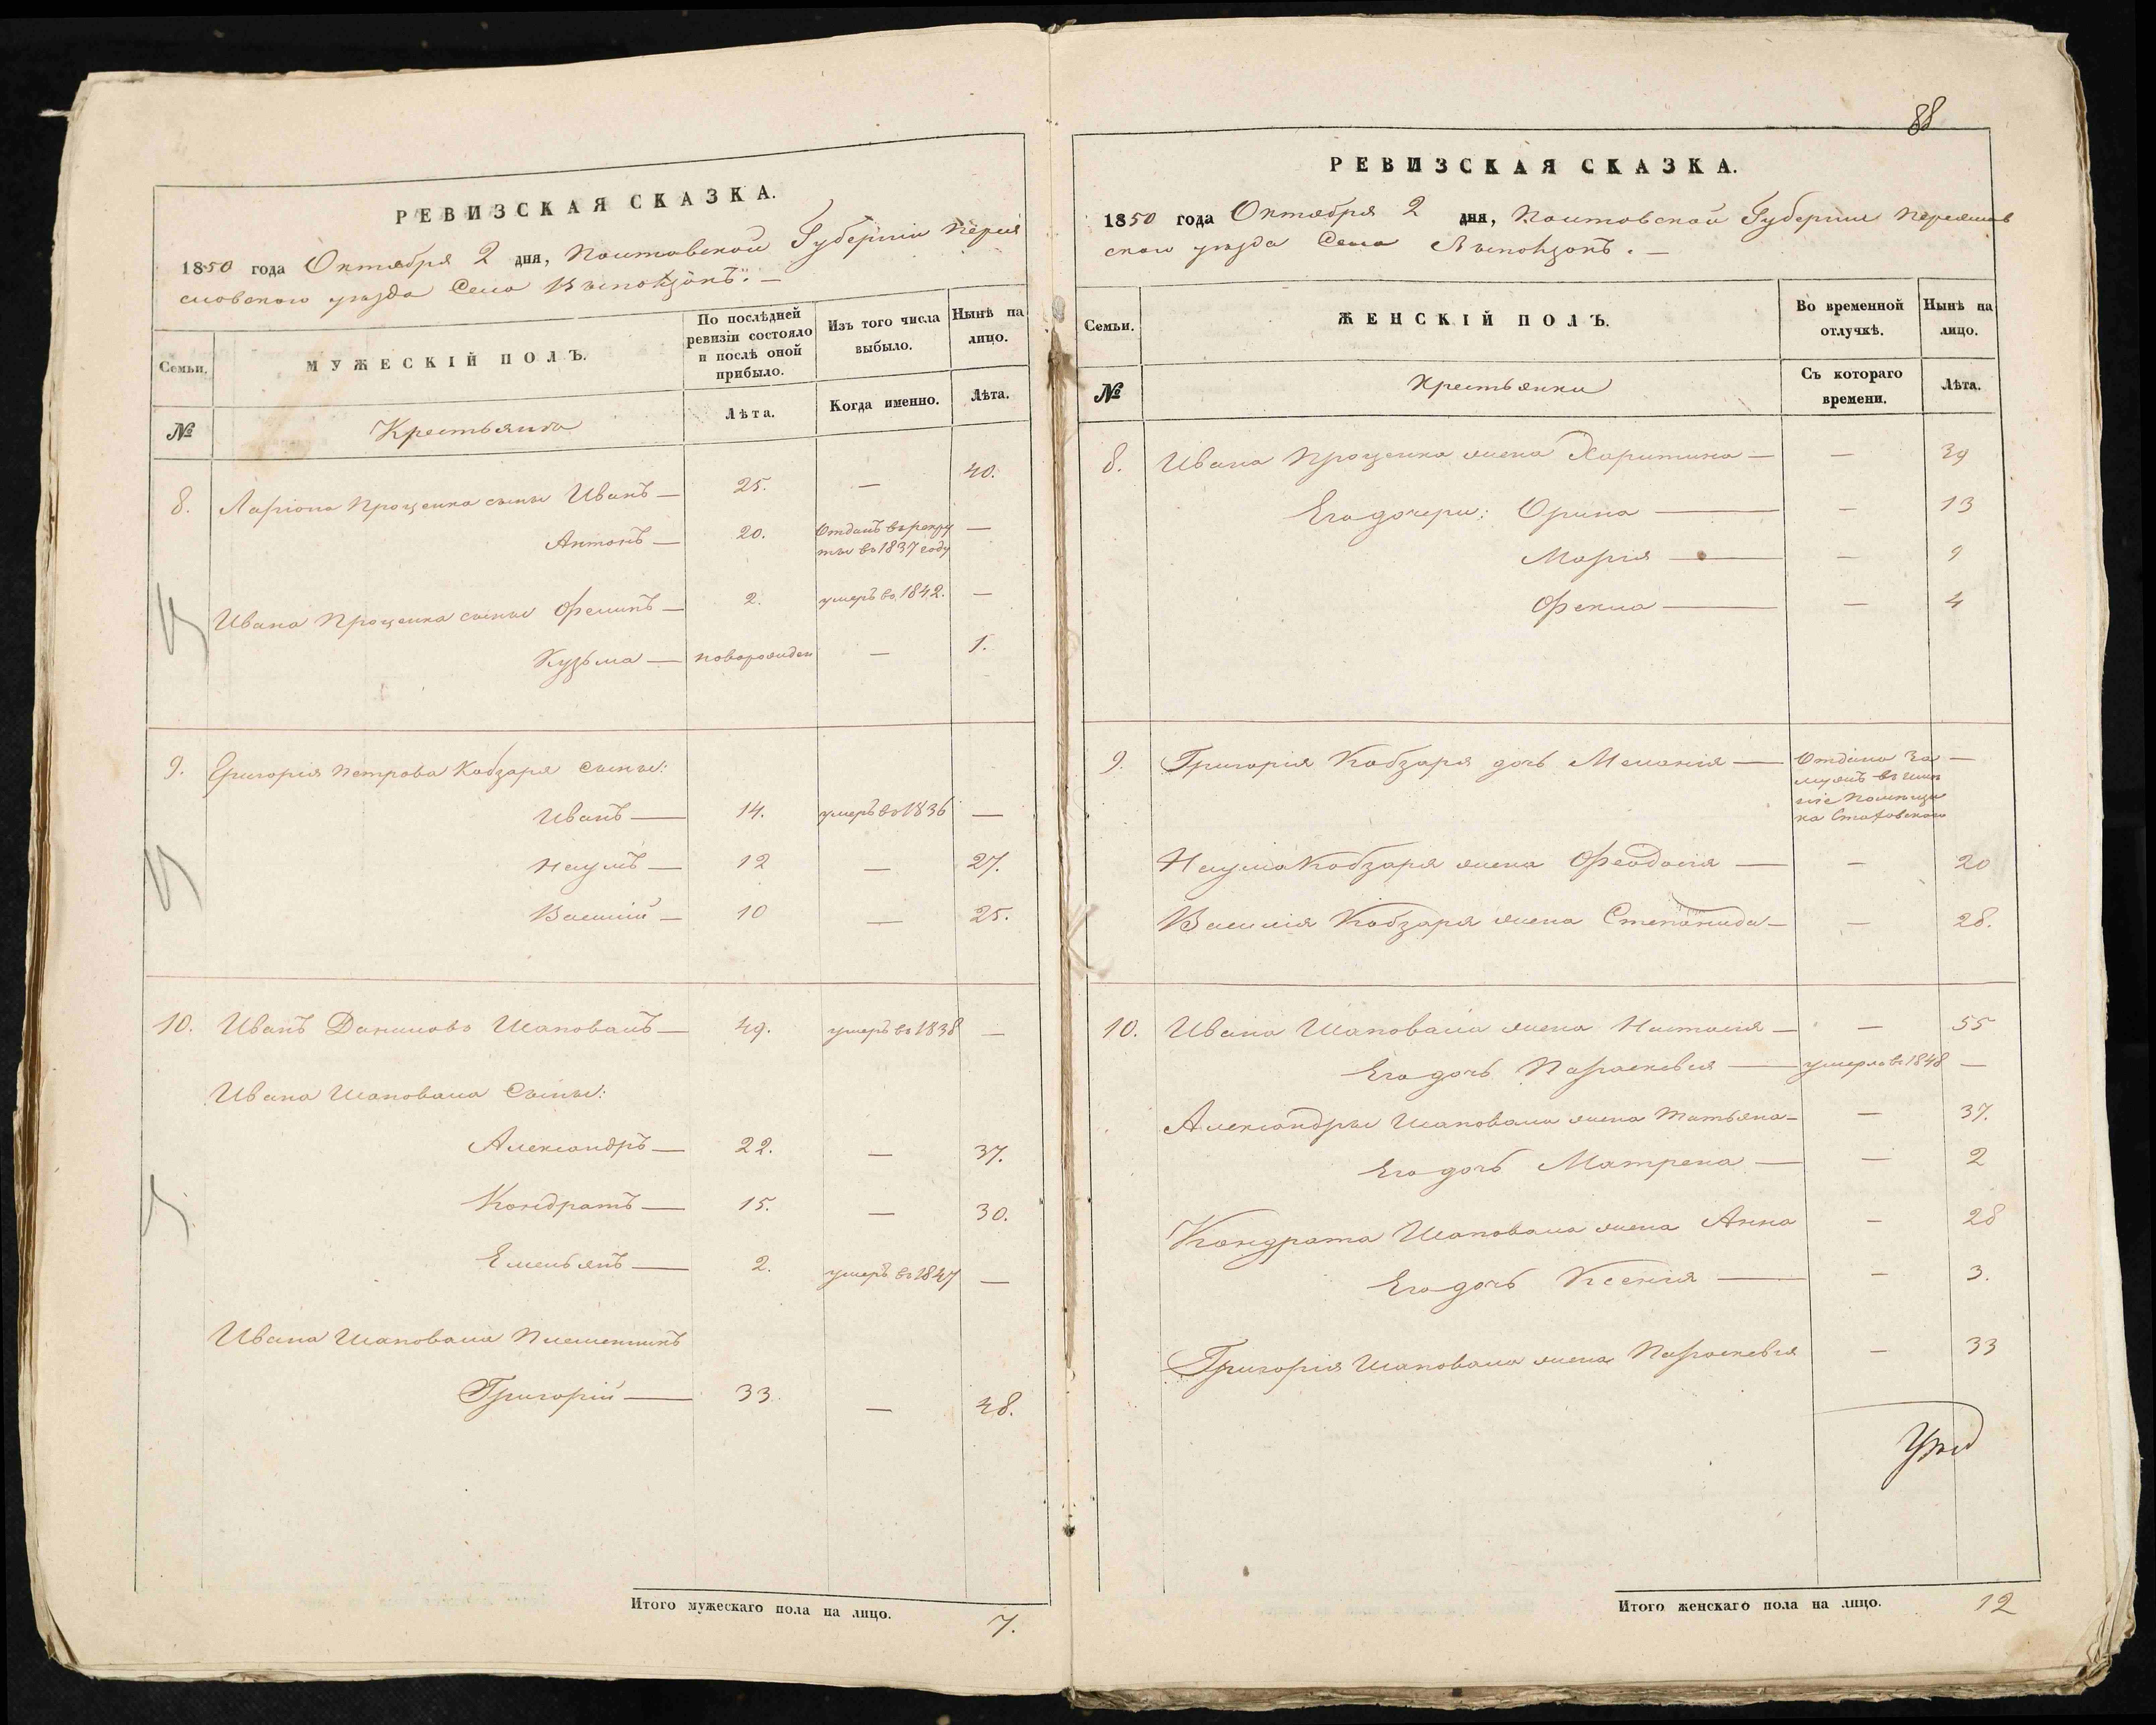 РЕВИЗСКАЯ СКАЗКА.
1850 года Октября 2 дня, Полтавской Губерніи Перея
славскаго уѣзда Села
Семьи.
МУЖЕСКІЙ ПОЛЪ.
По послѣдней
ревизіи состояло
и послѣ оной
прибыло.
Изъ того числа
выбыло.
Нынѣ на
лицо.
№
Крестьяне
Лѣта.
Когда именно.
Лѣта.
8. Ларіона Проценка сыны Иванъ — 25. — 40.
Антонъ — 20. Отданъ въ рекру
ты въ 1837 году —
Ивана Проценка сыны Филипъ — 2. умеръ въ 1842. —
Кузьма — новорожден — 1.
9. Григорія Петрова Кобзаря сыны:
Иванъ — 14. умеръ въ 1836 —
Наумъ — 12 — 27.
Василій — 10 — 25.
10. Иванъ Данилова Шаповалъ — 49. умеръ въ 1838 —
Ивана Шаповала Сыны:
Александръ — 22. — 37.
Кондратъ — 15. — 30.
Емельянъ — 2. умеръ въ 1847 —
Ивана Шаповала Племенникъ
Григорій — 33. — 48.
Итого мужескаго пола на лицо. 7.
88
РЕВИЗСКАЯ СКАЗКА.
1850 года Октября 2 дня, Полтавской Губерніи Переяслав
скаго уѣзда Села
Семьи.
ЖЕНСКІЙ ПОЛЪ.
Во временной
отлучкѣ.
Нынѣ на
лицо.
№
Крестьянки
Съ котораго
времени.
Лѣта.
8. Ивана Проценка жена Харитина — — 39
Его дочери: Орина — — 13
Марія — — 9
Фекла — — 4
9. Григорія Кобзаря дочь Меланія — Отдана за —
мужъ въ имѣ
ніе Помѣщи
ка
Наума Кобзаря жена Феодосія — — 20
Василія Кобзаря жена Степанида — — 28.
10. Ивана Шаповала жена Наталія — — 55
Его дочь Параскевія — умерла въ 1848 —
Александры Шаповала жена Татьяна — — 37.
Его дочь Матрена — — 2
Кондрата Шаповала жена Анна — 28
Его дочь Ксенія — — 3.
Григорія Шаповала жена Параскевія — 33
Итого женскаго пола на лицо. 12